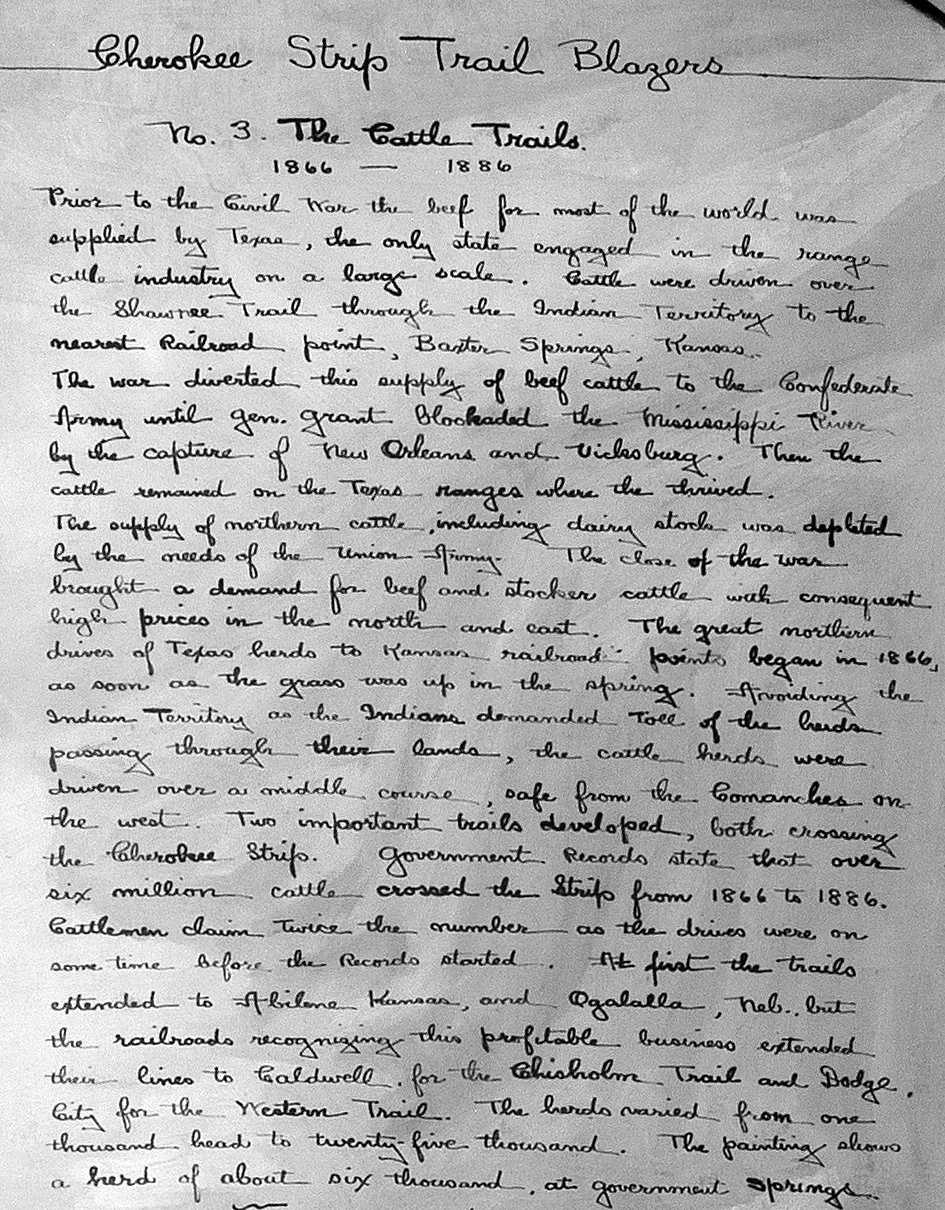 Cherokee Strip Trail Blazers
No. 3. The Cattle Trails.
1866 — 1886
Prior to the Civil War the beef for most of the world was
supplied by Texas, the only state engaged in the range
cattle industry on a large scale. Cattle were driven over
the Shawnee Trail through the Indian Territory to the
nearest Railroad point, Baxter Springs, Kansas.
The war diverted this supply of beef cattle to the Confederate
Army until Gen. Grant blockaded the Mississippi River
by the capture of New Orleans and Vicksburg. Then the
cattle remained on the Texas ranges where the thrived.
The supply of northern cattle, including dairy stock was depleted
by the needs of the Union Army. The close of the war
brought a demand for beef and stocker cattle with consequent
high prices in the north and east. The great northern
drives of Texas herds to Kansas railroad points began in 1866,
as soon as the grass was up in the spring. Avoiding the
Indian Territory as the Indians demanded Toll of the herds
passing through their lands, the cattle herds were
driven over a middle course, safe from the Comanches on
the west. Two important trails developed, both crossing
the Cherokee Strip. Government Records state that over
six million cattle crossed the Strip from 1866 to 1886.
Cattlemen claim Twice the number as the drives were on
some time before the Records started. At first the trails
extended to Abilene Kansas, and Ogalalla, Neb., but
the railroads recognizing this profitable business extended
their lines to Caldwell, for the Chisholm Trail and Dodge
City for the Western Trail. The herds varied from one
thousand head to twenty-five thousand. The painting shows
a herd of about six thousand, at government springs.